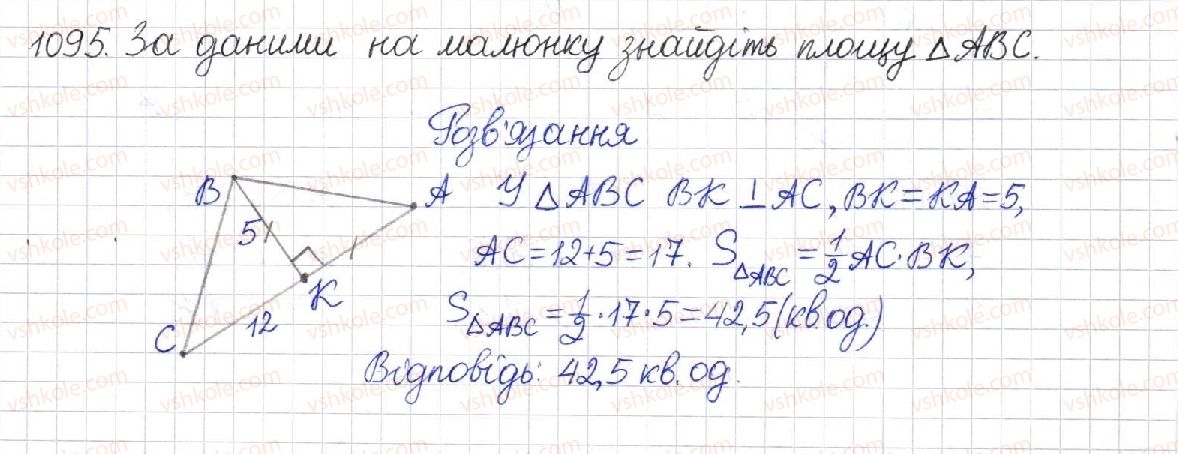 1095. За даними на малюнку знайдіть площу △ABC.
Розв'язання
B
A
У △ABC BK ⊥ AC, BK = KA = 5,
5
AC = 12 + 5 = 17. S△ABC = 1/2 AC · BK,
K
12
C
S△ABC = 1/2 · 17 · 5 = 42,5 (кв.од.)
Відповідь: 42,5 кв. од.
vshkole.com